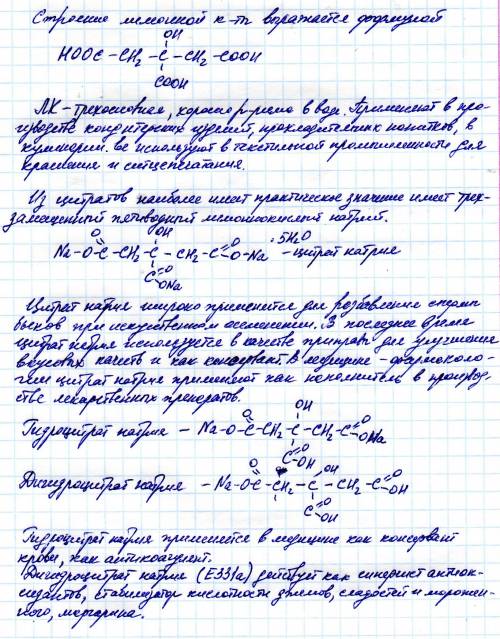 Строение лимонной к-ты выражается формулой
OH
HOOC – CH2 – C – CH2 – COOH
COOH
ЛК – трехосновная, хорошо р-рима в воде. Применяют в про-
изводстве кондитерских изделий, прохладительных напитков, в
кулинарии. Ее используют в текстильной промышленности для
крашения и ситцепечатания.
Из цитратов наиболее имеет практическое значение имеет трех-
замещенный пятиводный лимоннокислый натрий.
O OH O · 5H2O
Na – O – C – CH2 – C – CH2 – C – O – Na – цитрат натрия
C O ONa
Цитрат натрия широко применяется для разбавления спермы
быков при искусственном осеменении. В последнее время
цитрат натрия используется в качестве приправы для улучшения
вкусовых качеств и как консервант. В медицине – фармаколо-
гии цитрат натрия применяют как наполнитель в производ-
стве лекарственных препаратов.
O OH O
Гидроцитрат натрия – Na – O – C – CH2 – C – CH2 – C – ONa
C O OH
O OH O
Дигидроцитрат натрия – Na – O – C – CH2 – C – CH2 – C – OH
C O OH
Гидроцитрат натрия применяется в медицине как консервант
крови, как антикоагулянт.
Дигидроцитрат натрия (Е331а) действует как синергист антиок-
сидантов, стабилизатор кислотности джемов, сладостей и морожен-
ного, маргарина.